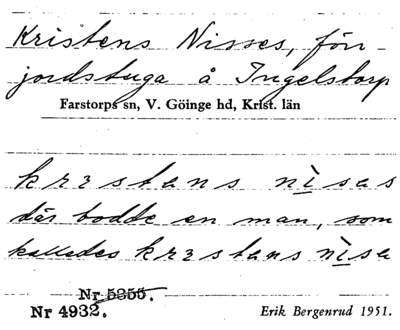 Kristens Nisses, för-
jordstuga å Ingelstorp
Farstorps sn, V. Göinge hd, Krist. län
krɜstans nìsas
där bodde en man, som
kallades krɜstans nìsa
Nr 5355.
Nr 4932. Erik Bergenrud 1951.